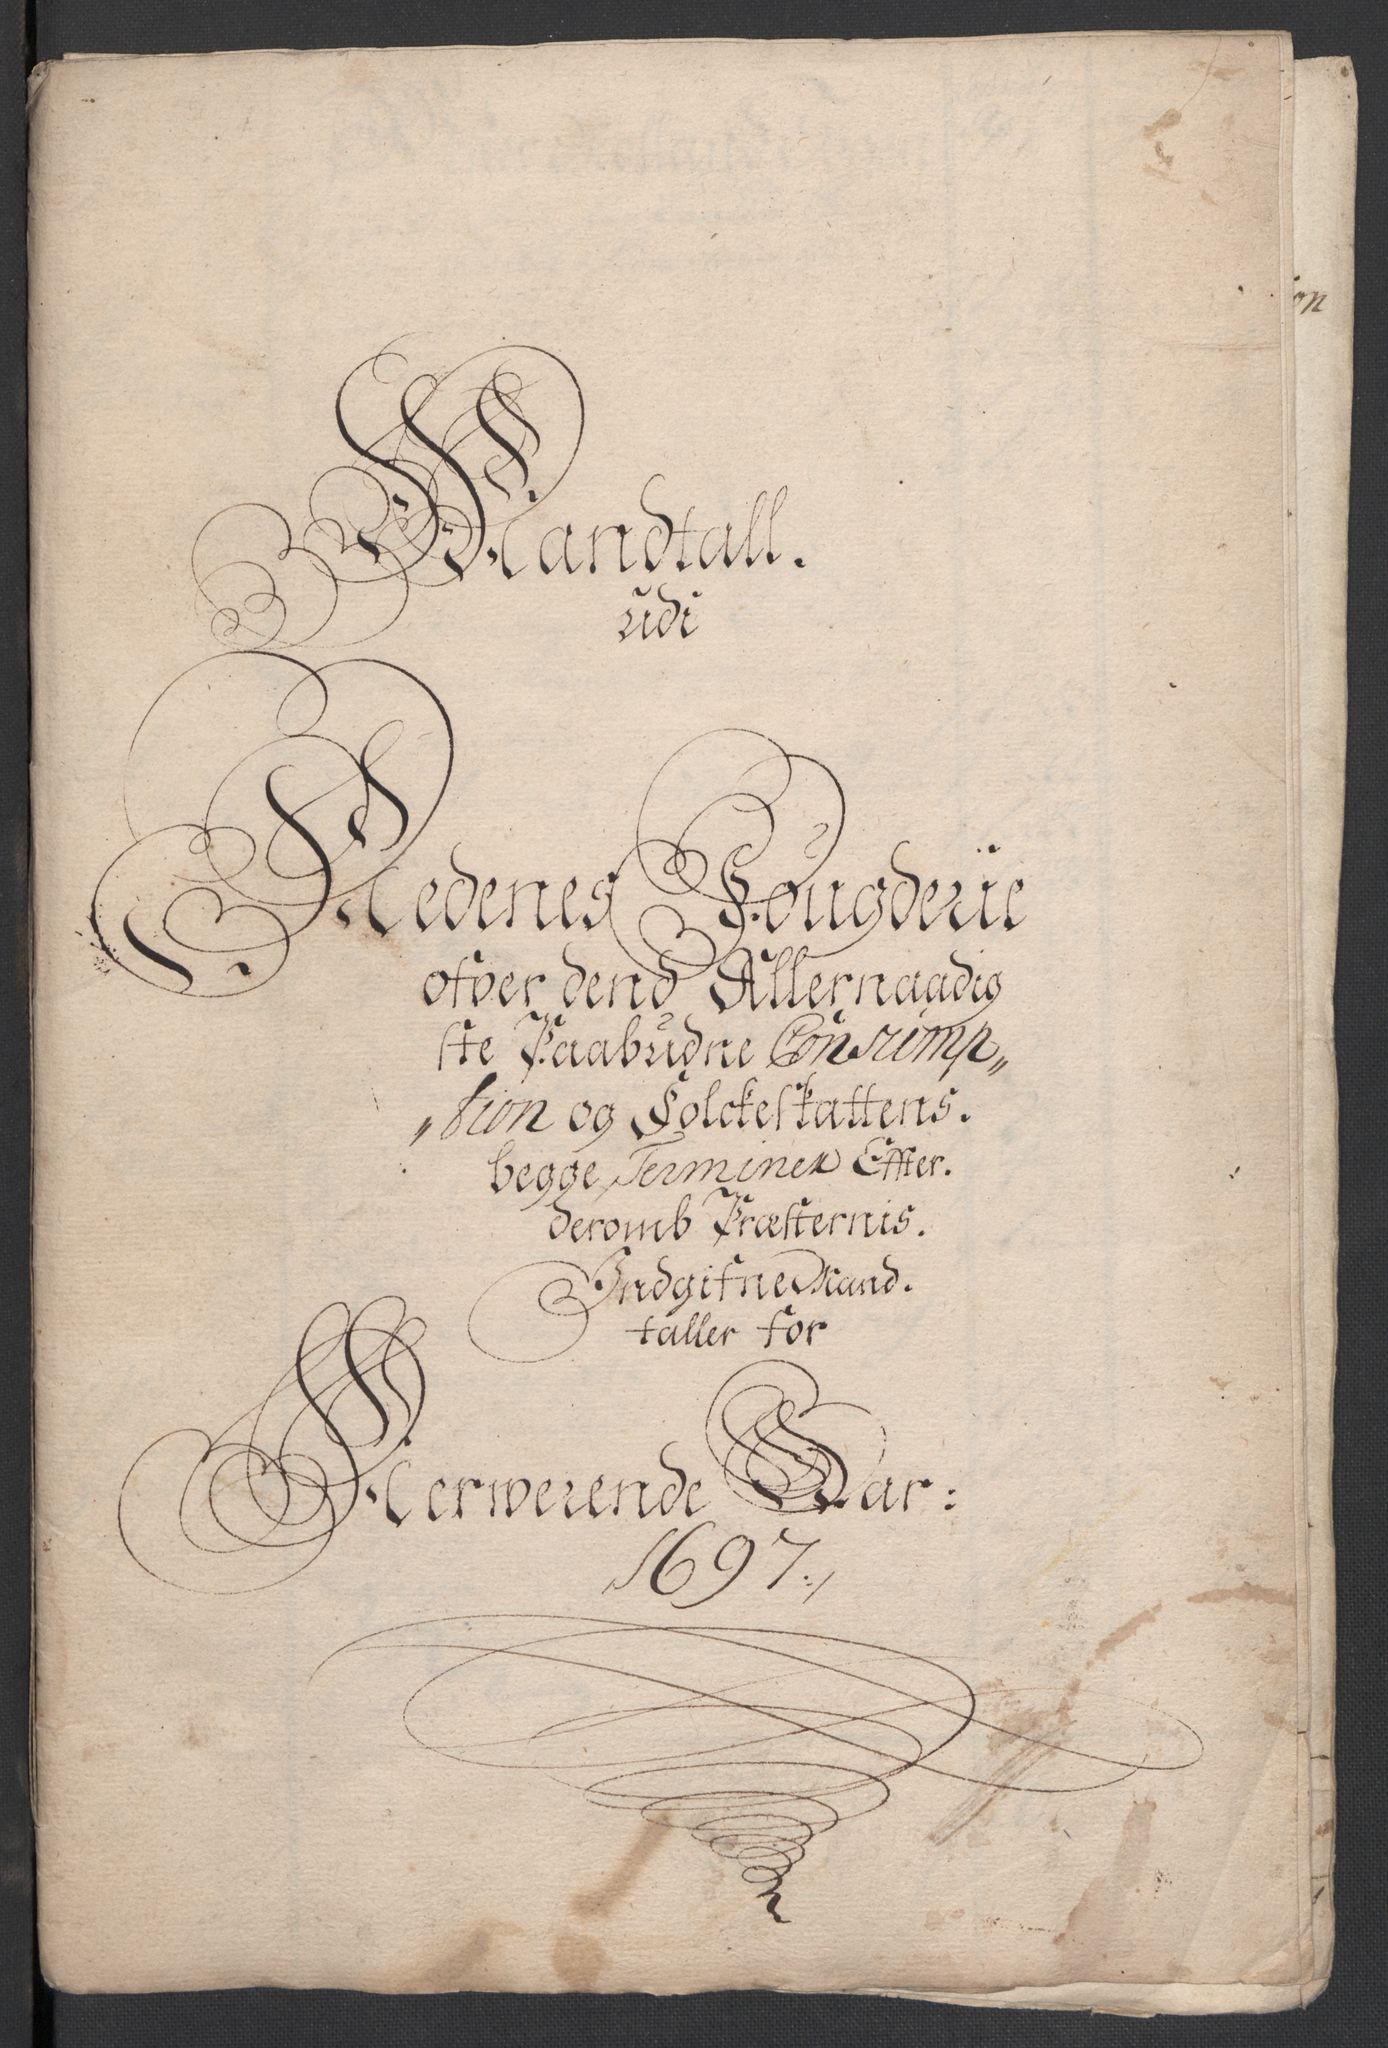 Mandtall.
udi
Nedenes Fougderie
ofver dend Allernaadig
ste Paabudne Consump„
„tion og Folckeskattens.
begge Terminer Effter.
deromb Præsternis.
Indgifne Mand.
taller for
Nerwerende Aar:
1697./
on